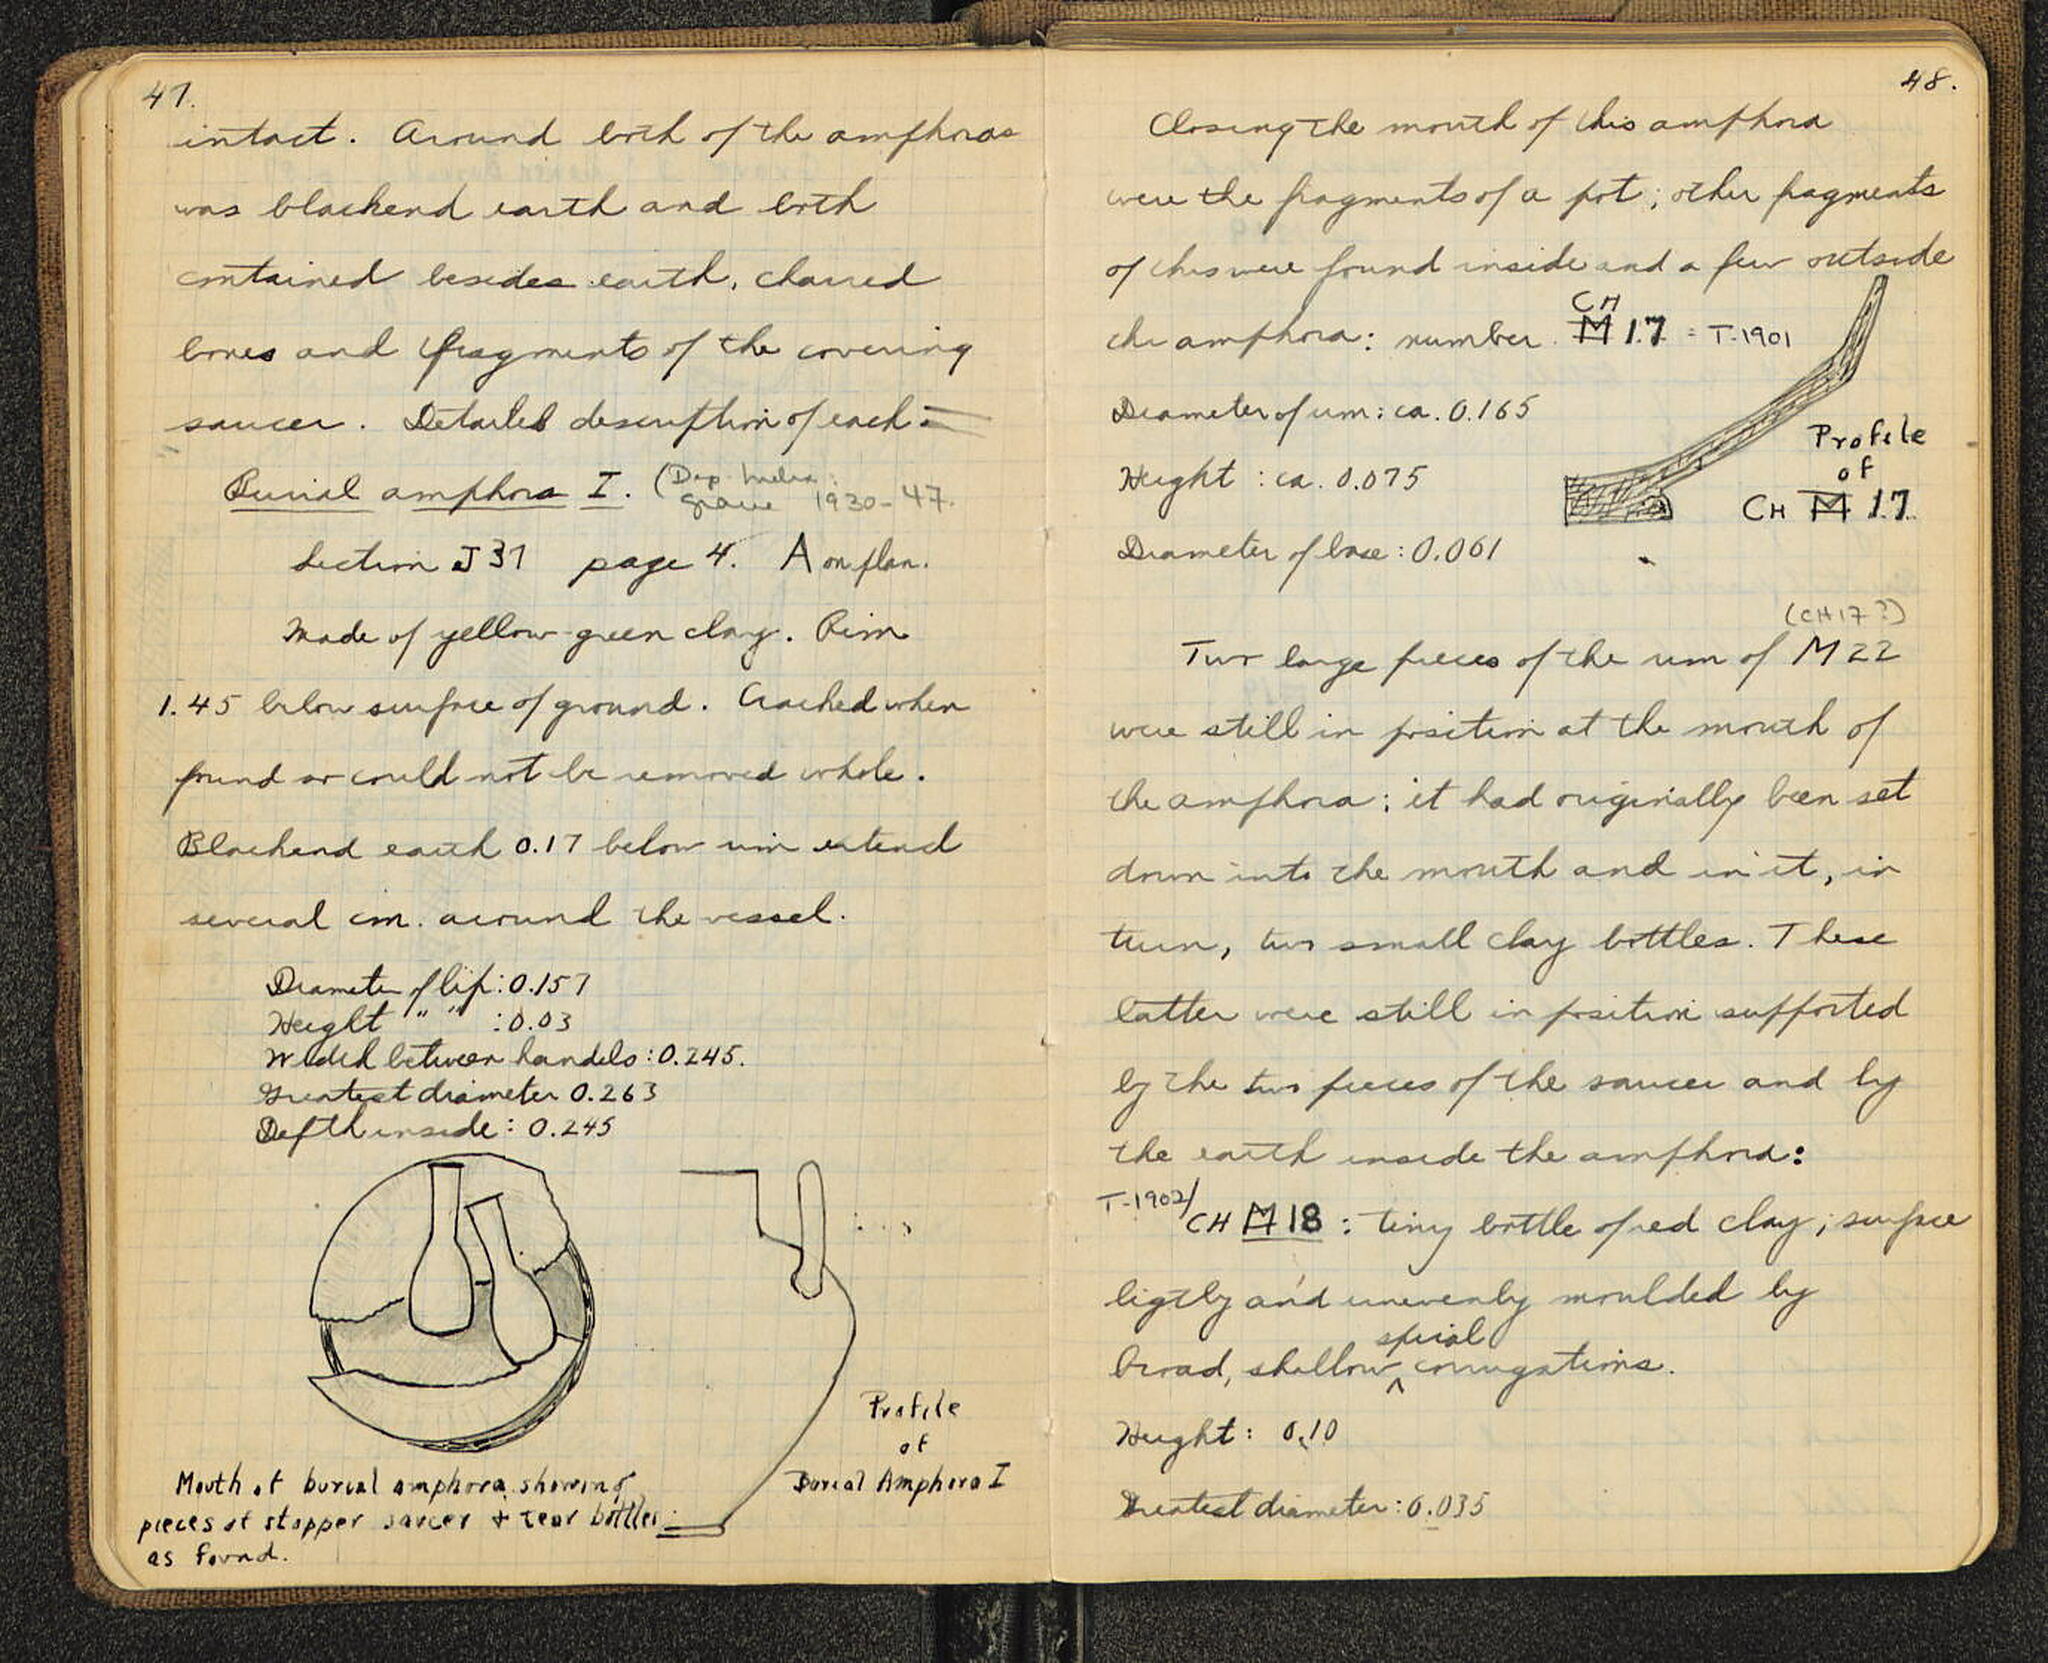 47.
intact. Around both of the amphoras
was blackend earth and both
contained besides earth, charred
bones and fragments of the covering
saucer. Detailed description of each:
Burial amphora I. (Dep.
grave 1930-47.
Section J37 page 4. A on plan.
Made of yellow-green clay. Rim
1.45 below surface of ground. Cracked when
found so could not be removed whole.
Blackend earth 0.17 below rim extend
several cm. around the vessel.
Diameter of lip: 0.157
Height " " : 0.03
Width between handels: 0.245.
Greatest diameter 0.263
Depth inside: 0.245
Profile
of
Burial Amphora I
Mouth of burial amphora showing
pieces of stopper saucer + tear bottles
as found.
48.
Closing the mouth of this amphora
were the fragments of a pot; other fragments
of this were found inside and a few outside
CH
the amphora: number M 17 = T-1901
Diameter of rim: ca. 0.165
Height: ca. 0.075
Diameter of base: 0.061
Profile
of
CH M 17
(CH 17?)
Two large pieces of the rim of M 22
were still in position at the mouth of
the amphora; it had originally been set
down into the mouth and in it, in
turn, two small clay bottles. These
latter were still in position supported
by the two pieces of the saucer and by
the earth inside the amphora:
T-1902/ CH M 18: tiny bottle of red clay; surface
ligtly and unevenly moulded by
spiral
broad, shallow ^ corrugations.
Height: 0.10
Greatest diameter: 0.035